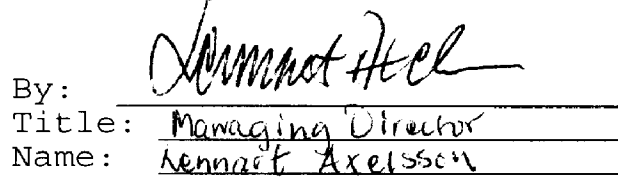 By: Lennart Axel
Title: Managing Director
Name: Lennart Axelsson